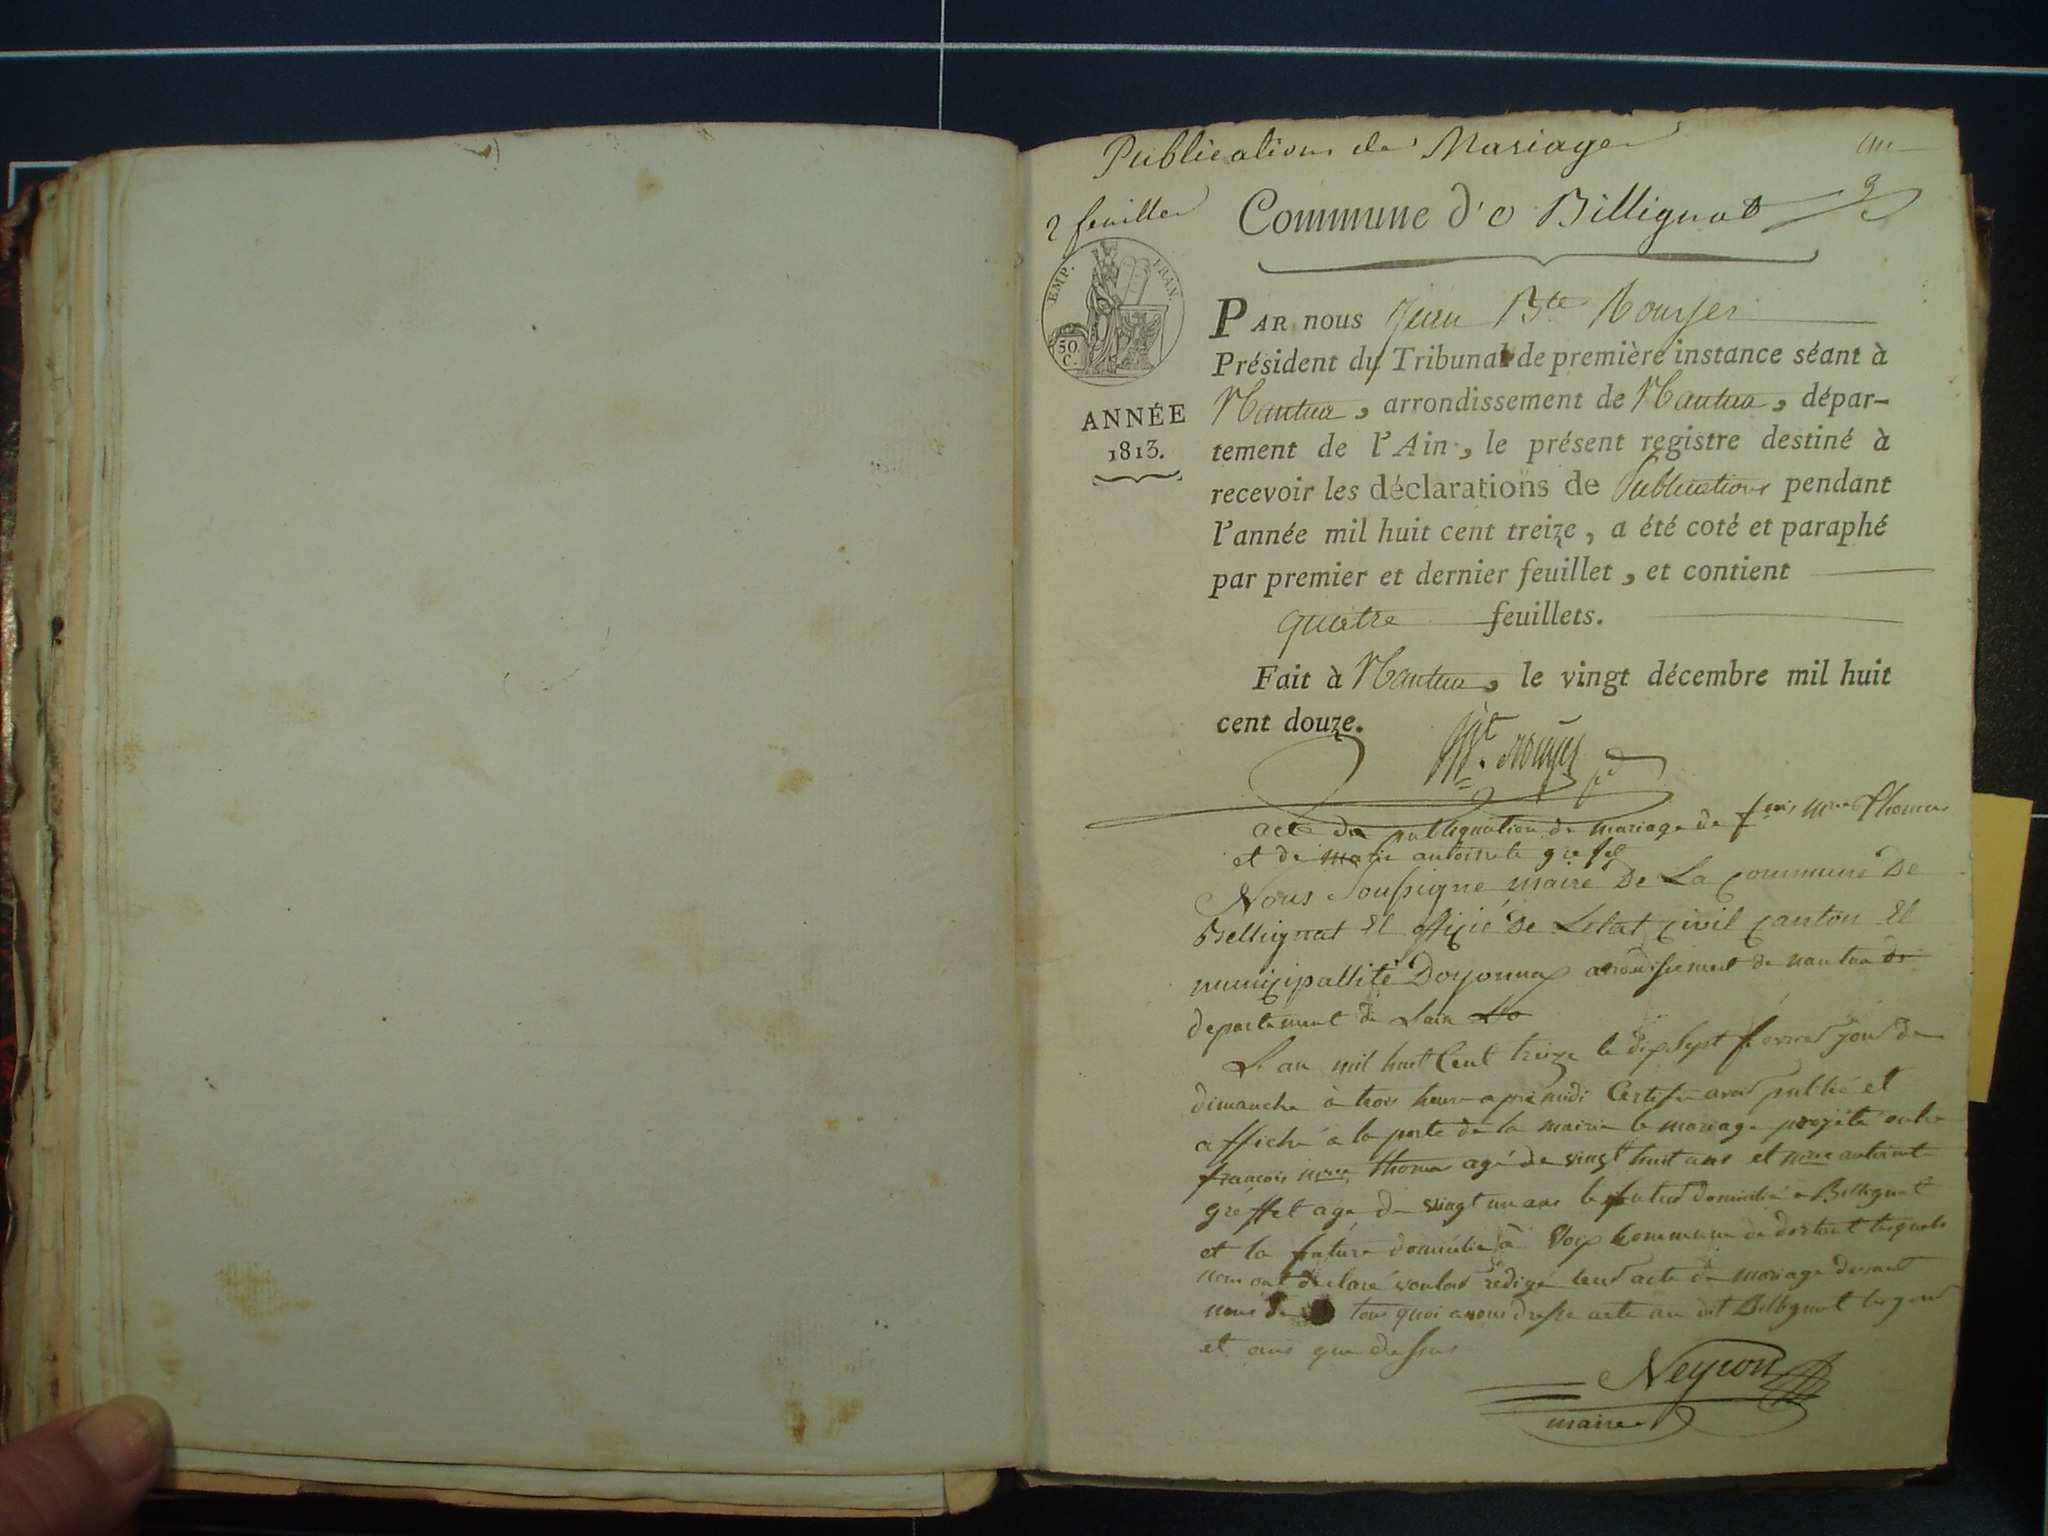 Publications de Mariages
2 feuilles
Commune d'e Billignat
EMP. FRAN.
50. C.
ANNÉE
1813.
PAR nous Jean Bte Rouyer
Président du Tribunal de première instance séant à
Nantua, arrondissement de Nantua, dépar-
tement de l'Ain, le présent registre destiné à
recevoir les déclarations de Publications pendant
l'année mil huit cent treize, a été coté et paraphé
par premier et dernier feuillet, et contient
quatre feuillets.
Fait à Nantua, le vingt décembre mil huit
cent douze.
acte de publiquation de mariage de fcois mrie thomas
et de marie antoinete greffet
Nous Soussigne maire De La Commune De
Bellignat Et offizié De Letat Civil Canton Et
municipallité Doyonnax arondissement de nantua de
departement de Lain
L an mil huit Cent treize le dix Sept fevrier jour de
dimanche à trois heure apré midi Certifie avoir publié et
affiché a la porte de la mairie le mariage projeté entre
francois mrie thomas agé de vingt huit ans et mrie antoinete
gréffet agé de vingt un ans le futur domicilié a Bellignat
et la future domicilié à Voix Commune de dortant lesquels
nous ont declaré vouloir rédigé leur acte de mariage devant
nous de tous quoi avons dressé acte au dit Bellignat les jour
et ans que dessus
Neyron
maire